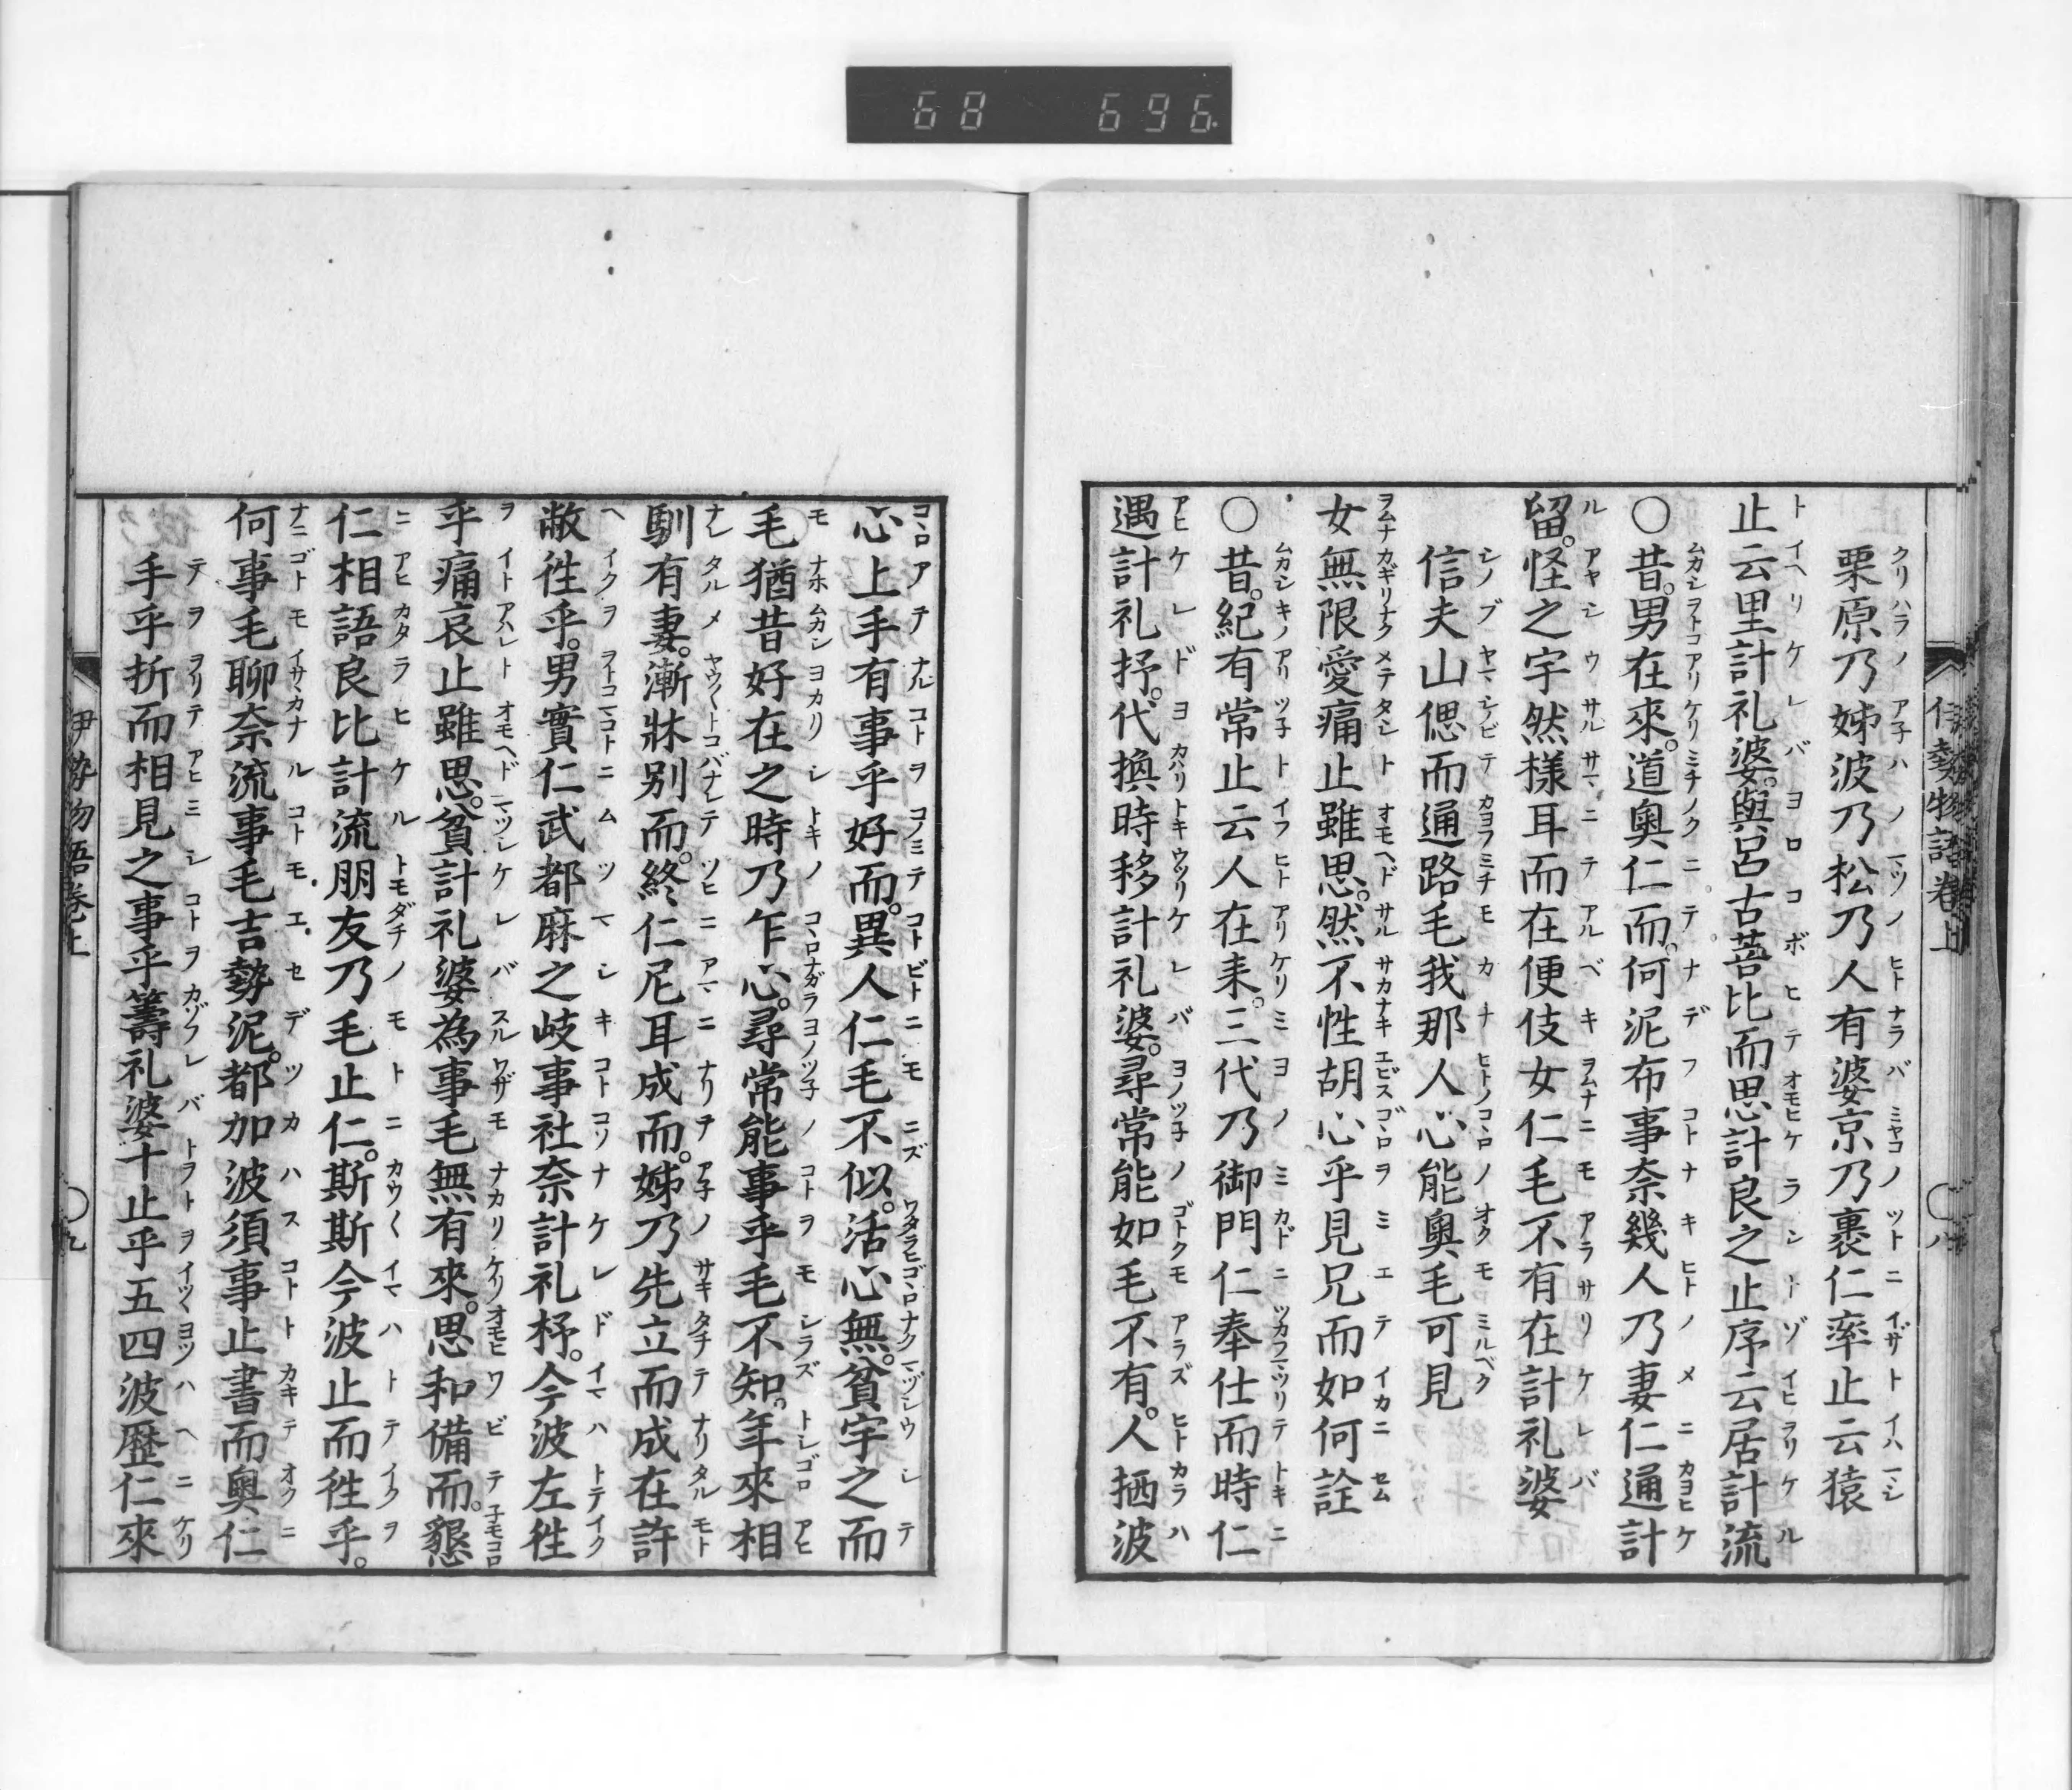 68 696
仁勢物語卷上
八
栗原乃姊波乃松乃人有婆京乃裹仁率止云猿
止云里計礼婆。與呂古菩比而思計良之止序云居計流
〇昔。男在來。道奧仁而。何泥布事奈幾人乃妻仁通計
留。怪之宇然樣耳而在便伎女仁毛不有在計礼婆
信夫山偲而通路毛我那人心能奧毛可見
女無限愛痛止雖思。然不性胡心乎見兄而如何詮
〇昔。紀有常止云人在耒。三代乃御門仁奉仕而時仁
遇計礼抒。代換時移計礼婆。尋常能如毛不有。人栖波
心上手有事乎好而。異人仁毛不似。活心無。貧宇之而
毛猶昔好在之時乃乍心。尋常能事乎毛不知。年來相
馴有妻。漸牀別而。終仁尼耳成而。姊乃先立而成在許
敝徃乎。男實仁武都麻之岐事社奈計礼抒。今波左徃
乎痛哀止雖思。貧計礼婆為事毛無有來。思和備而。懇
仁相語良比計流朋友乃毛止仁。斯斯今波止而徃乎。
何事毛聊奈流事毛吉勢泥。都加波須事止書而奧仁
手乎折而相見之事乎籌礼婆十止乎五四波歷仁來
伊勢物語卷上
九